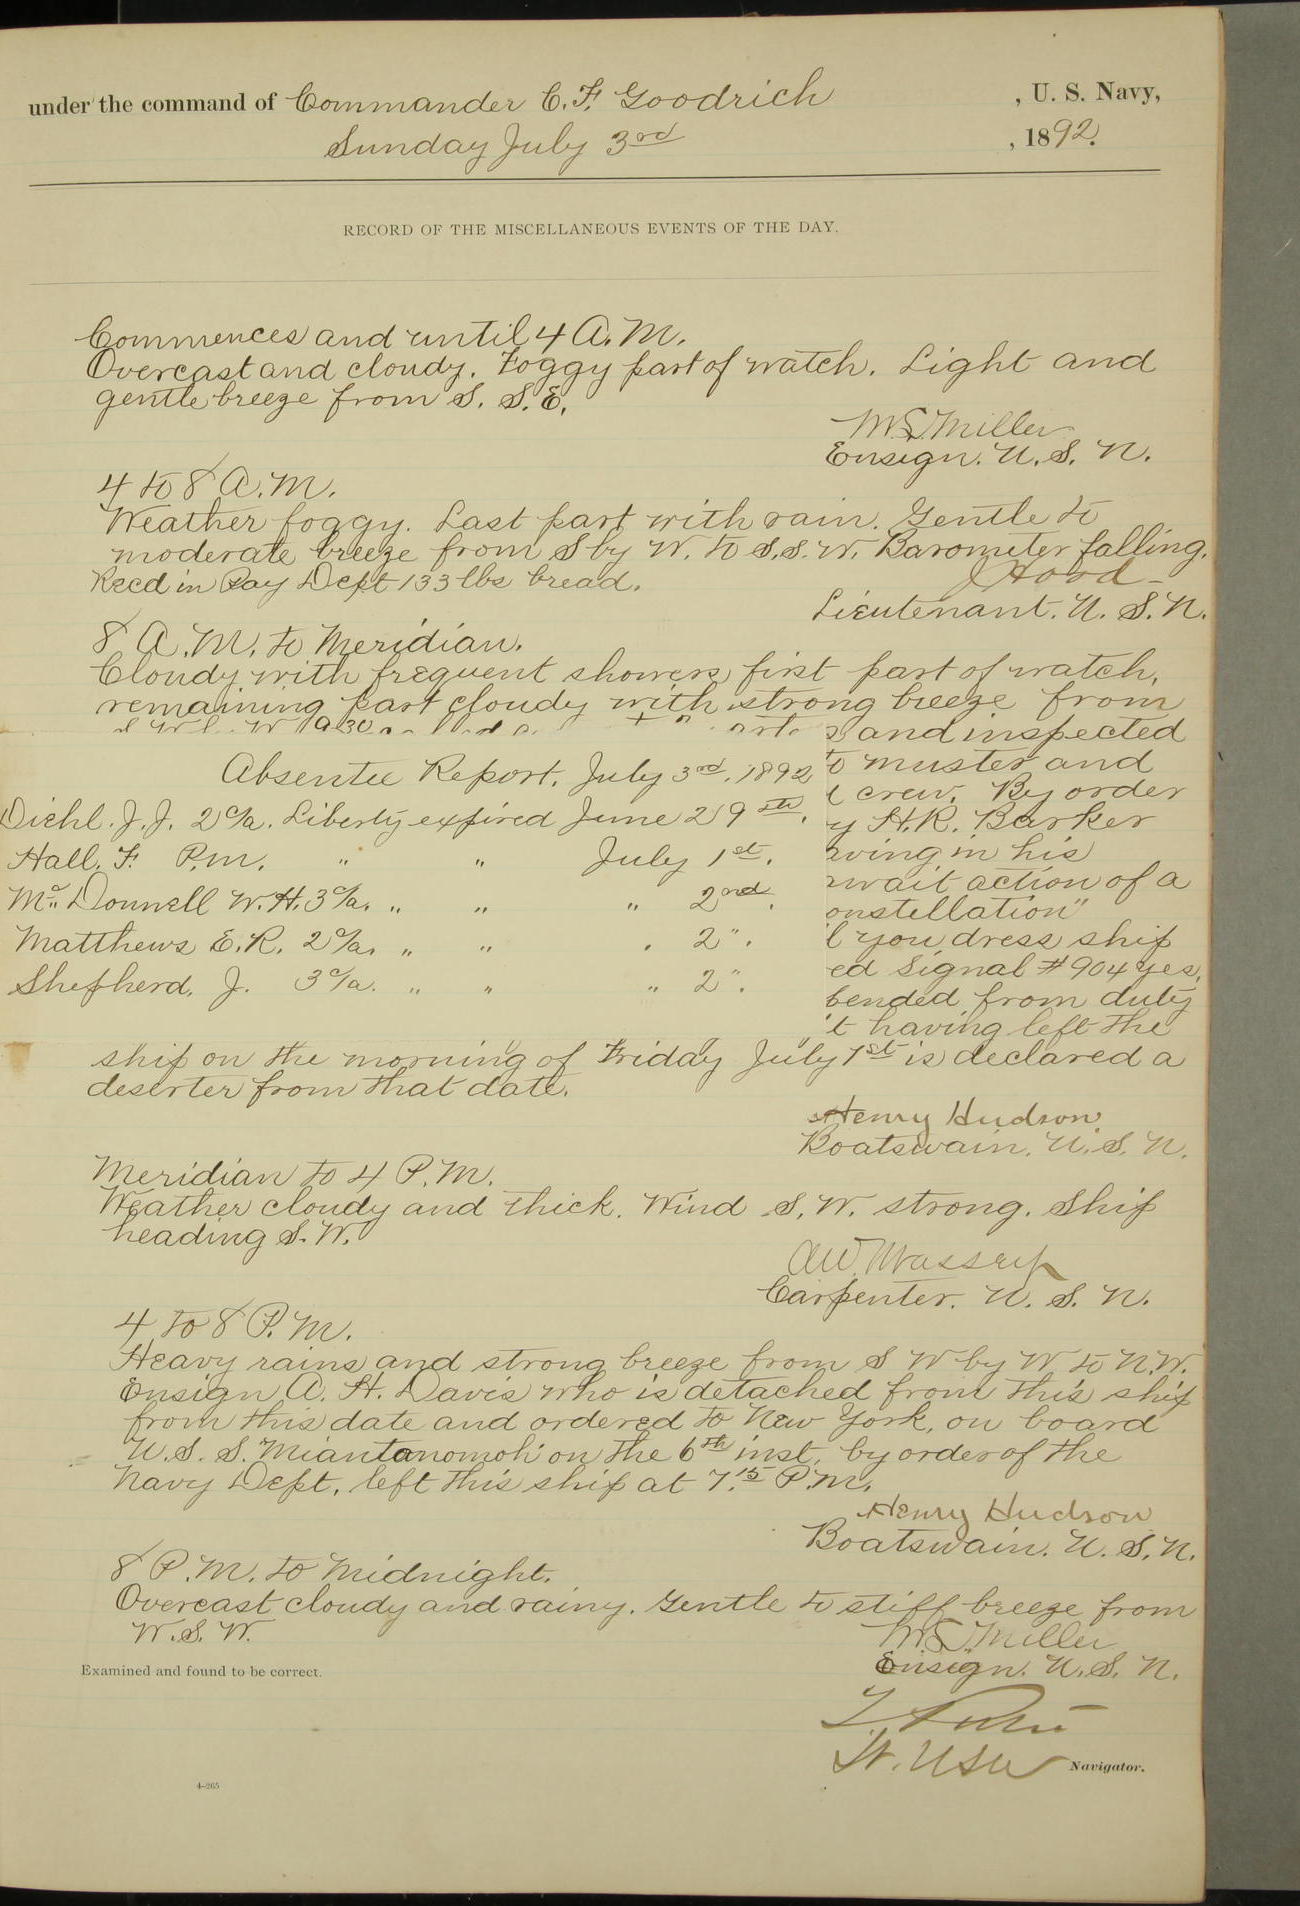 under the command of Commander C. F. Goodrich , U. S. Navy,
Sunday July 3rd , 1892.
RECORD OF THE MISCELLANEOUS EVENTS OF THE DAY.
Commences and until 4 A.M.
Overcast and cloudy. Foggy part of watch. Light and
gentle breeze from S. S. E.
M.S. Miller
Ensign. U. S. N.
4 to 8 A.M.
Weather foggy. Last part with rain. Gentle to
moderate breeze from S by W. to S.S.W. Barometer falling.
Recd in Pay Dept 133 lbs bread.
J Hood
Lieutenant. U. S. N.
8 A.M. to Meridian.
Cloudy with frequent showers first part of watch,
remaining part cloudy with strong breeze from
and inspected
Absentee Report. July 3rd. 1892
to muster and
crew. By order
Diehl. J. J. 2 c/a. Liberty expired June 29th.
y H.R. Barker
Hall. F. P.m. " " July 1st.
aving in his
await action of a
McDonnell W. H. 3 c/a. " " " 2nd.
onstellation"
Matthews E. R. 2 c/a. " " . 2".
l you dress ship
ed Signal # 904 yes,
Shepherd. J. 3 c/a. " " " 2".
pended from duty
't having left the
ship on the morning of Friday July 1st is declared a
deserter from that date.
Henry Hudson
Boatswain. U. S. N.
Meridian to 4 P.M.
Weather cloudy and thick. Wind S. W. strong. Ship
heading S. W.
Carpenter. U. S. N.
4 to 8 P.M.
Heavy rains and strong breeze from S W by W to N.W.
Ensign A. H. Davis who is detached from this ship
from this date and ordered to New York, on board
U. S. S. Miantonomoh on the 6th inst. by order of the
Navy Dept. left this ship at 7.15 P.M.
Henry Hudson
Boatswain. U. S. N.
8 P.M. to Midnight.
Overcast cloudy and rainy. Gentle to stiff breeze from
W. S. W.
M.S. Miller
Ensign. U. S. N.
Examined and found to be correct.
Lt. USN Navigator.
4-265